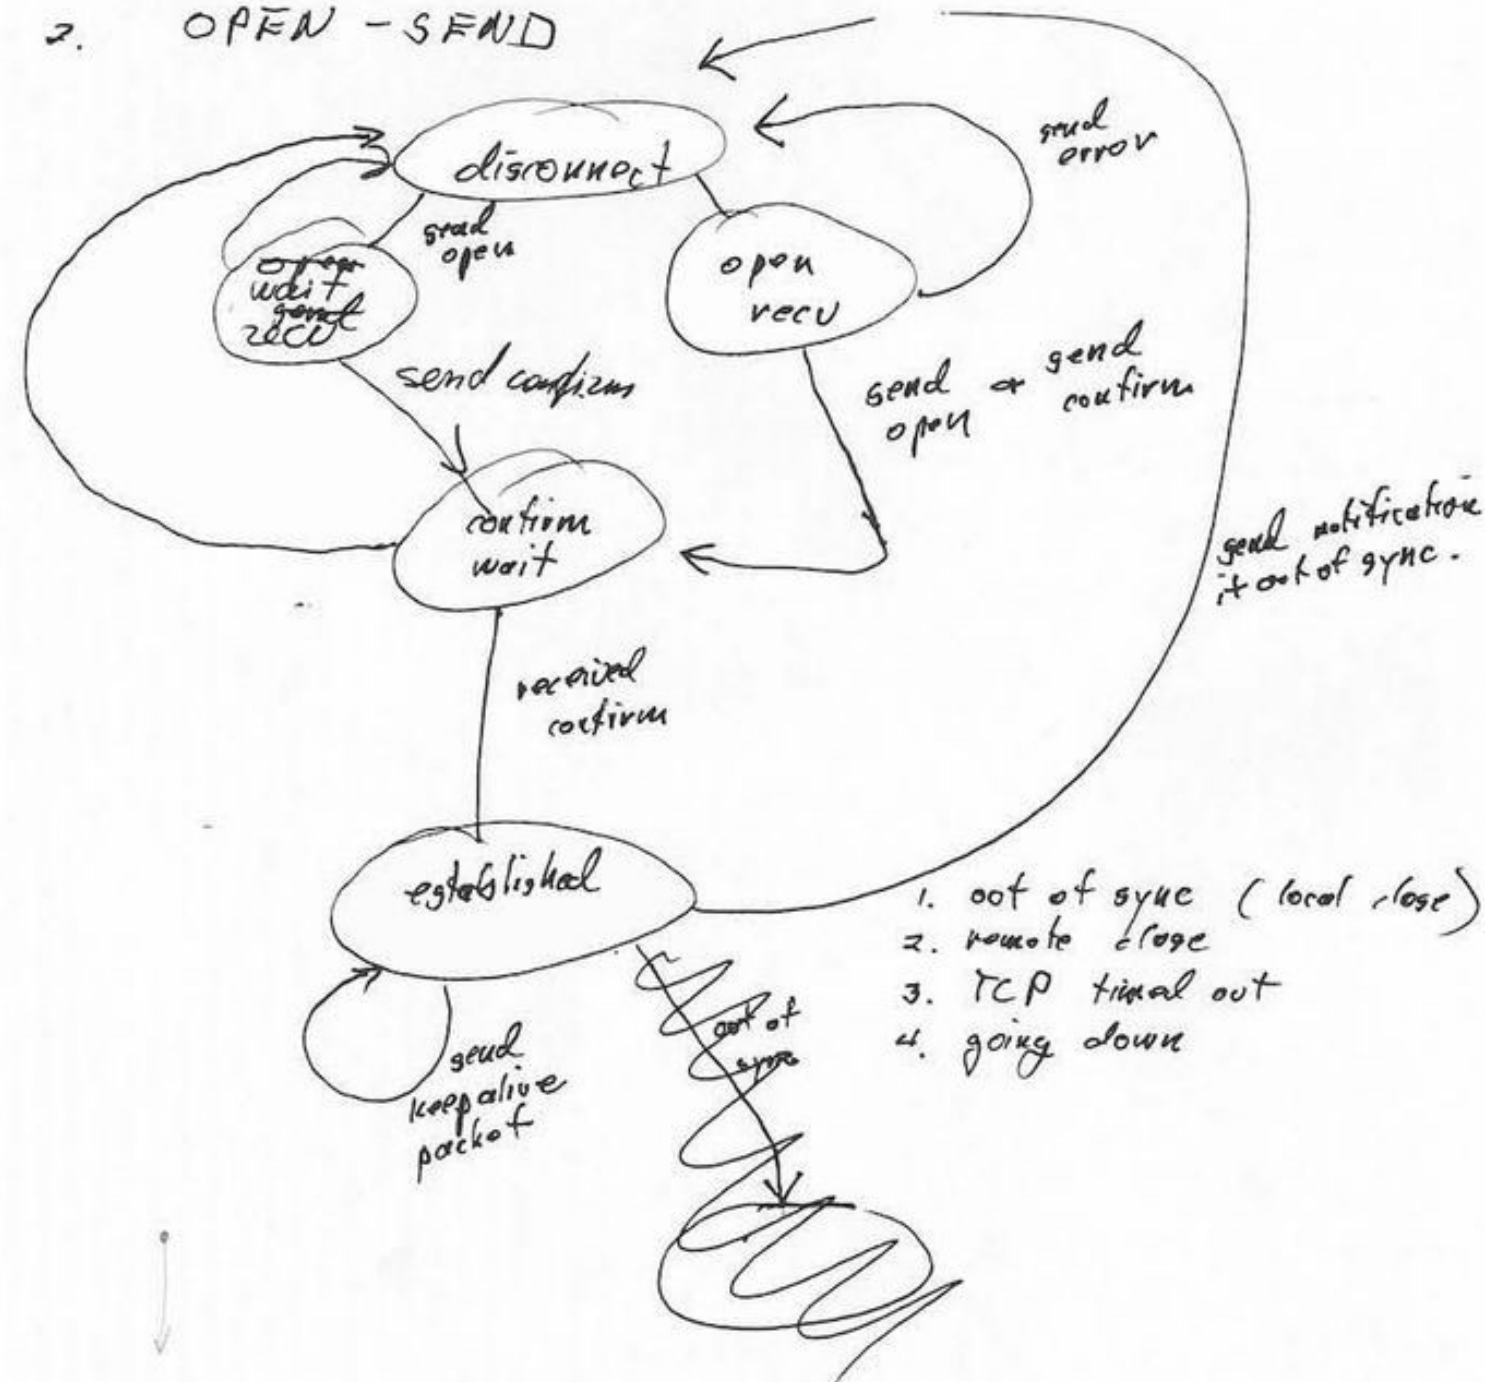 2. OPEN - SEND
disconnect
send
error
send
open
open
recv
open
wait
send
recv
send confirm
send or send
open confirm
confirm
wait
send notification
if out of sync.
received
confirm
established
1. out of sync (local close)
2. remote close
3. TCP timed out
4. going down
out of
sync
send
keepalive
packet